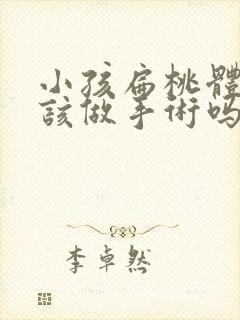 小孩扁桃體
該做手術嗎
李卓然